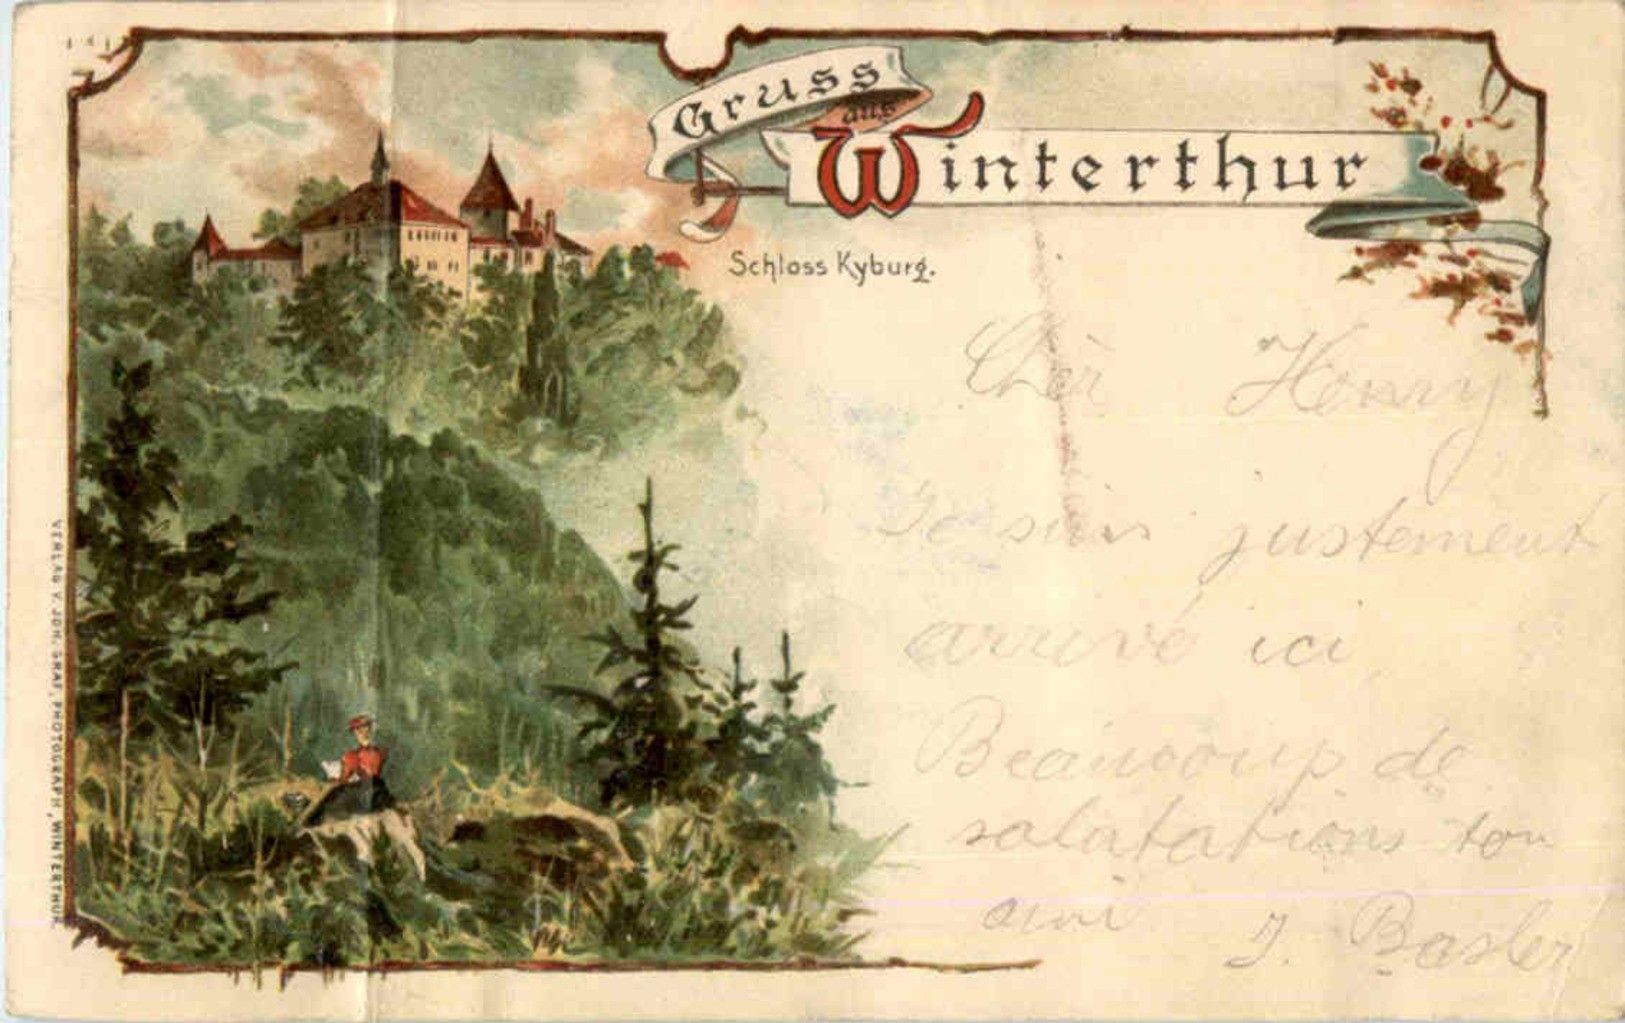 Gruss
aus
Winterthur
Schloss Kyburg.
Chèr Henry
Je suis justement
arrivé ici
Beaucoup de
salatations ton
ami J. Basler
VERLAG V. JOH. GRAF, PHOTOGRAPH, WINTERTHUR.